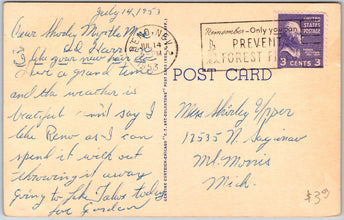 July 14, 1953
Dear Shirley Myrtle Mae
like your new hair do
Have a grand time
and the weather is
beatiful - and say I
like Reno as I can
spend it with out
throwing it away
going to Lake Tahoe today
love Gordon
RENO, NEV.
JUL 14
Remember - Only you can
PREVENT
FOREST
UNITED STATES
POSTAGE
3 CENTS 3
POST CARD
Miss Shirley Upper
12535 N. Saginaw
Mt. Morris
Mich.
$3.00